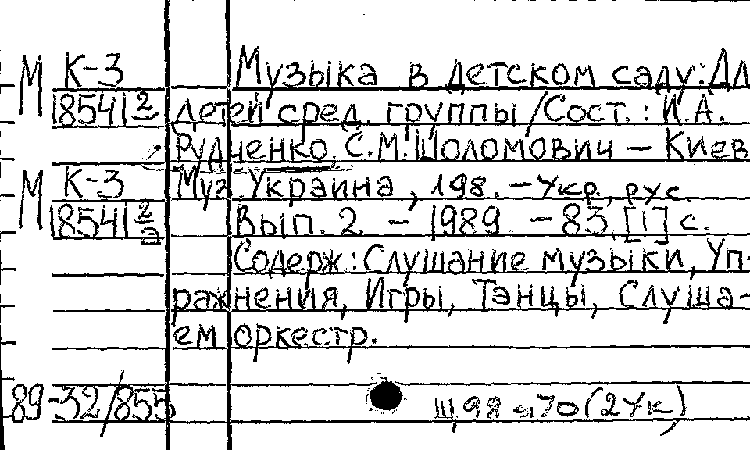 М К-3 Музыка в детском саду: Дл
18541 2 детей сред. группы / Сост.: И.А.
Рудченко, С.М. Шоломович – Киев
М К-3 Муз. Украина, 198. – Укр., рус.
18541 2 Вып. 2 – 1989 – 83, [1] с.
а Содерж: Слушание музыки, Уп-
ражнения, Игры, Танцы, Слуша-
ем оркестр.
89-32/855 Щ98я70(2Ук)